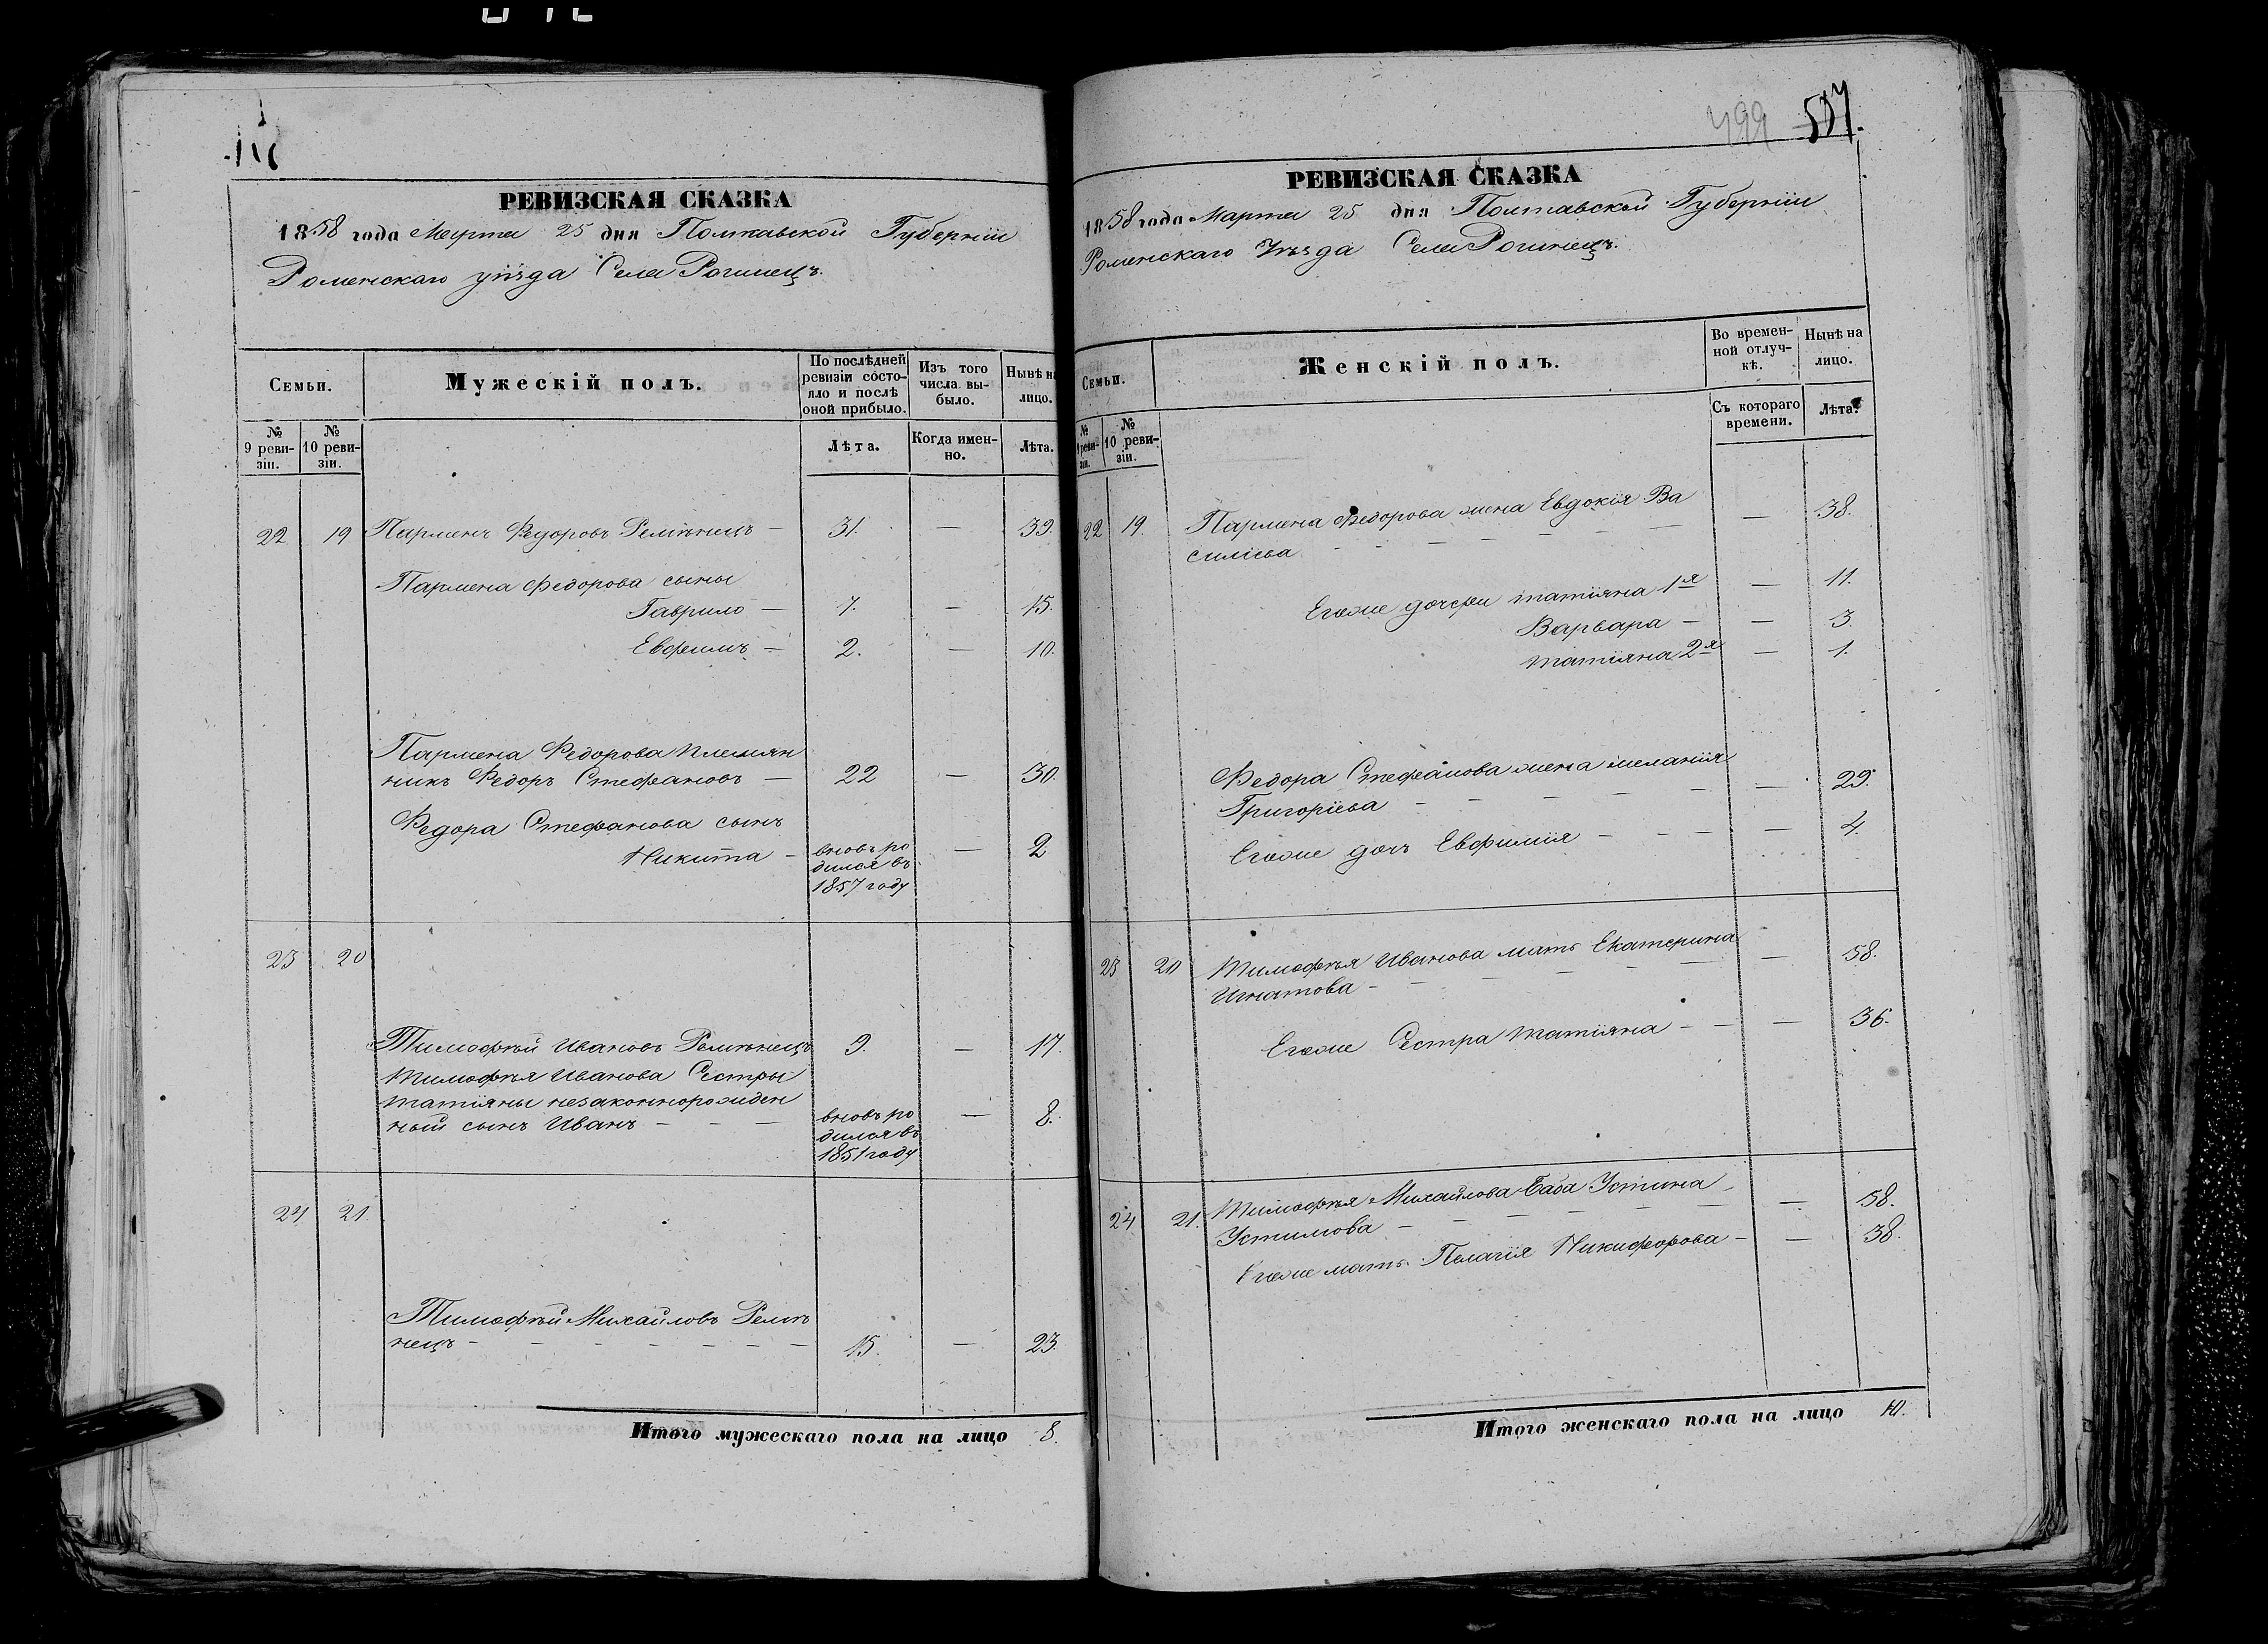 РЕВИЗСКАЯ СКАЗКА
1858 года Марта 25 дня Полтавской Губерніи
Роменскаго уѣзда Села Рогинецъ.
Семьи.
Мужескій полъ.
По послѣдней ревизіи состояло и послѣ оной прибыло.
Изъ того числа выбыло.
Нынѣ на лицо.
№ 9 ревизіи.
№ 10 ревизіи.
Лѣта.
Когда именно.
Лѣта.
22 19 Парменъ Федоровъ Ремѣнецъ — 31. — 39.
Пармена Федорова сыны
Гаврило — 7. — 15.
Евфимъ — 2. — 10.
Пармена Федорова племян
никъ Федоръ Стефановъ — 22 — 30.
Федора Стефанова сынъ
Никита — вновь ро — 2
дился въ
1857 году
23 20
Тимофѣй Ивановъ Ремѣнецъ 9. — 17.
Тимофѣя Иванова Сестры
Татіяны незаконнорожден
ный сынъ Иванъ — — — вновь ро — 8.
дился въ
1851 году
24 21.
Тимофѣй Михайловъ Ремѣ
нецъ — — — — — — — 15. — 23.
Итого мужескаго пола на лицо 8.
499 507.
РЕВИЗСКАЯ СКАЗКА
1858 года Марта 25 дня Полтавской Губерніи
Роменскаго Уѣзда Села Рогинецъ.
Семьи.
Женскій полъ.
Во временной отлучкѣ.
Нынѣ на лицо.
№ 9 ревизіи.
№ 10 ревизіи.
Съ котораго времени.
Лѣта.
22 19. Пармена Федорова жена Евдокія Ва
силіева — — — — — — — — 38.
Егоже дочери Татіяна 1я — 11.
Варвара — — 3.
Татіяна 2я — 1.
Федора Стефанова жена Меланія
Григоріева — — — — — — — 29.
Егоже дочь Евфимія — — — — 4.
23 20 Тимофѣя Иванова мать Екатерина
Игнатова — — — — — — — 58.
Егоже Сестра Татіяна — — — 36.
24 21. Тимофѣя Михайлова баба Устина
Устимова — — — — — — — 58.
Егоже мать Пелагія Никифорова — — 38.
Итого женскаго пола на лицо 10.